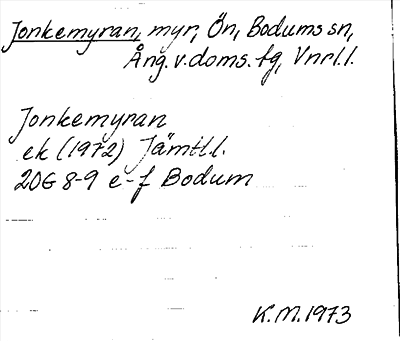 Jonkemyran, myr, Ön, Bodums sn,
Ång. v. doms. tg, Vnrl. l.
Jonkemyran
ek (1972) Jämtl. l.
20G 8-9 e-f Bodum
K.M. 1973